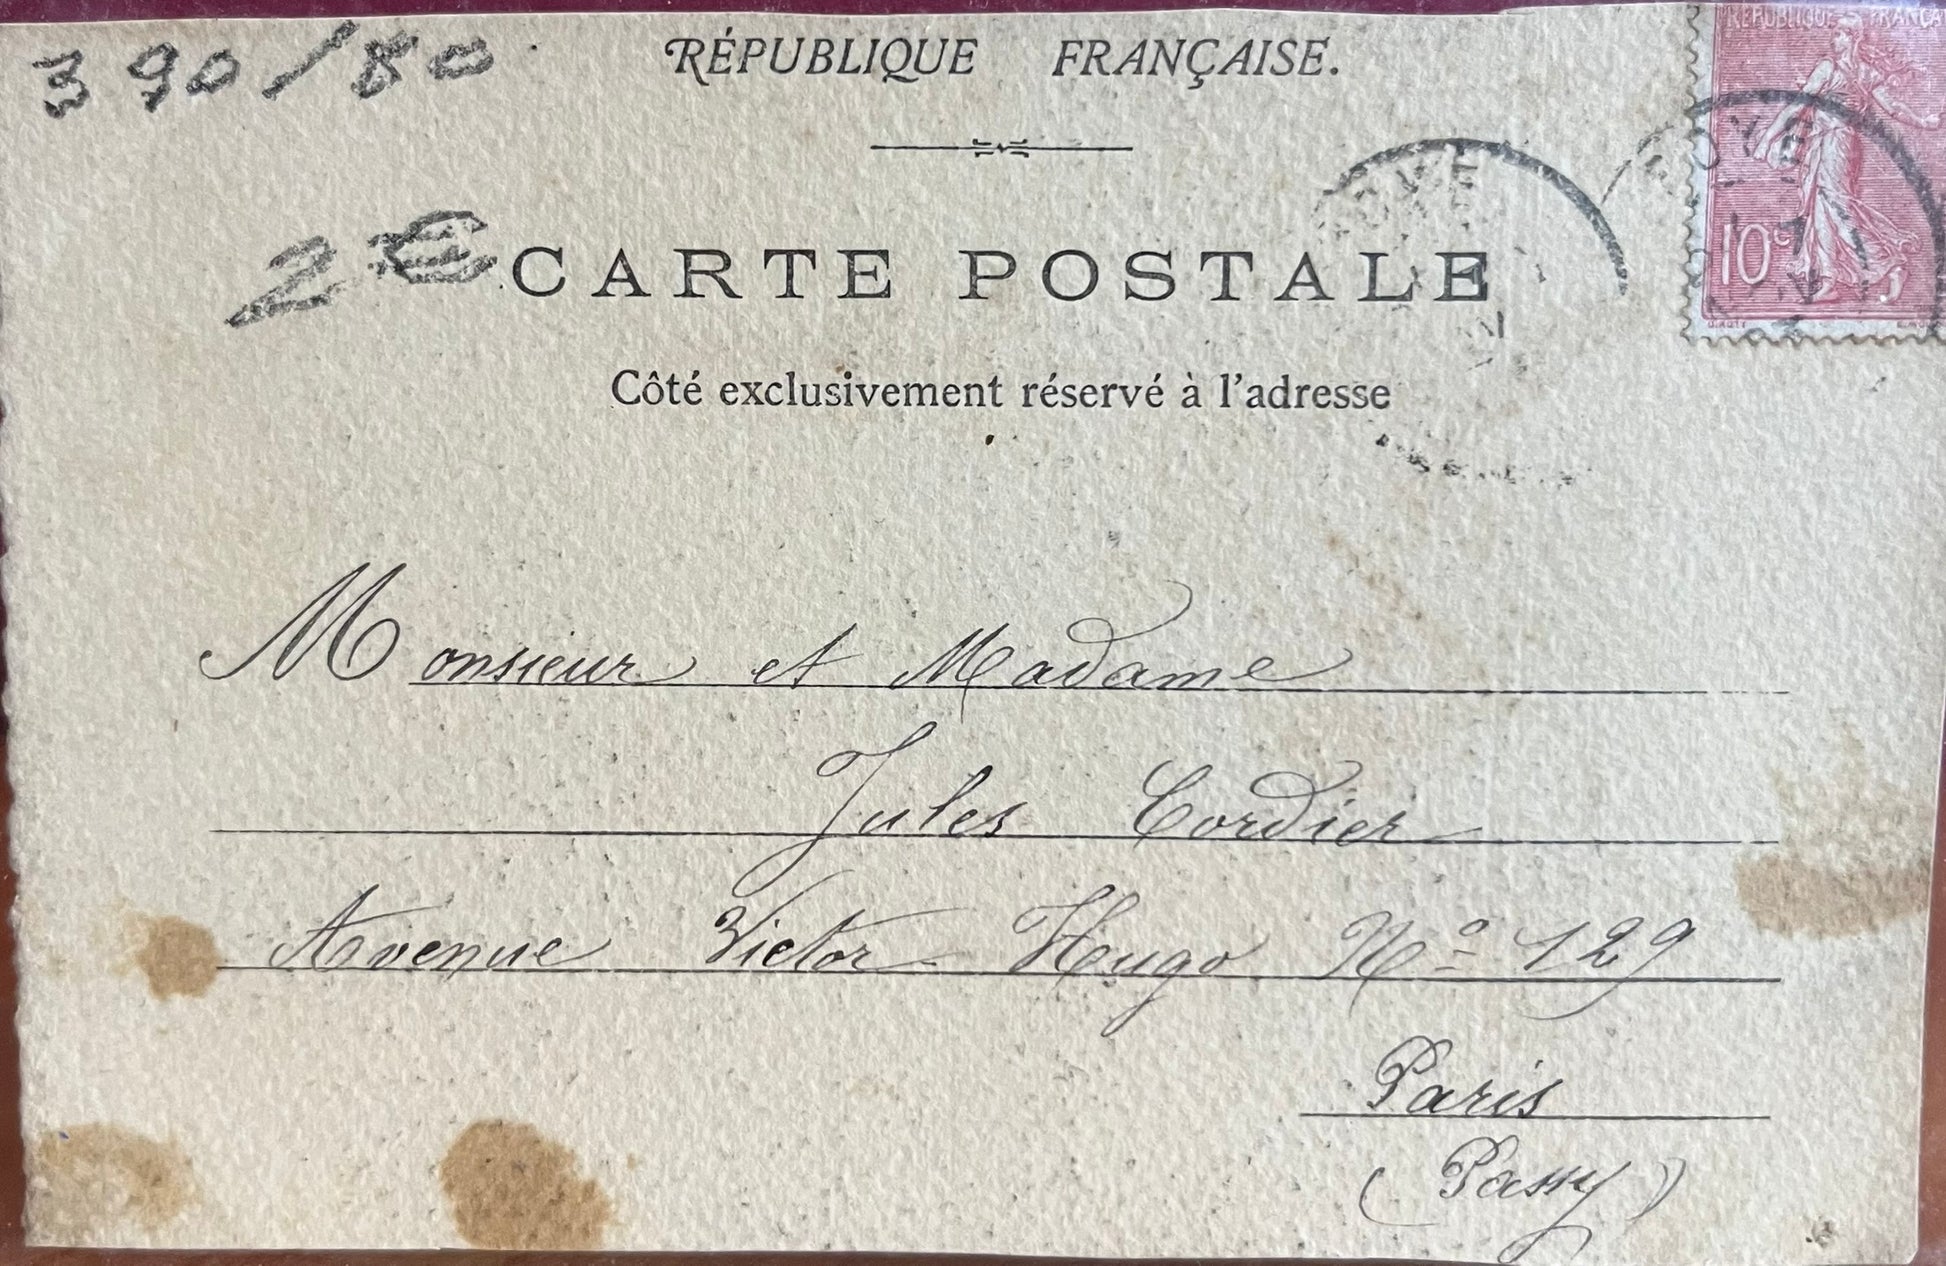 390/80
RÉPUBLIQUE FRANÇAISE.
RÉPUBLIQUE FRANÇA
2€
CARTE POSTALE
10c
Côté exclusivement réservé à l'adresse
Monsieur et Madame
Jules Cordier
Avenue Victor Hugo Nº 129
Paris
(Passy)